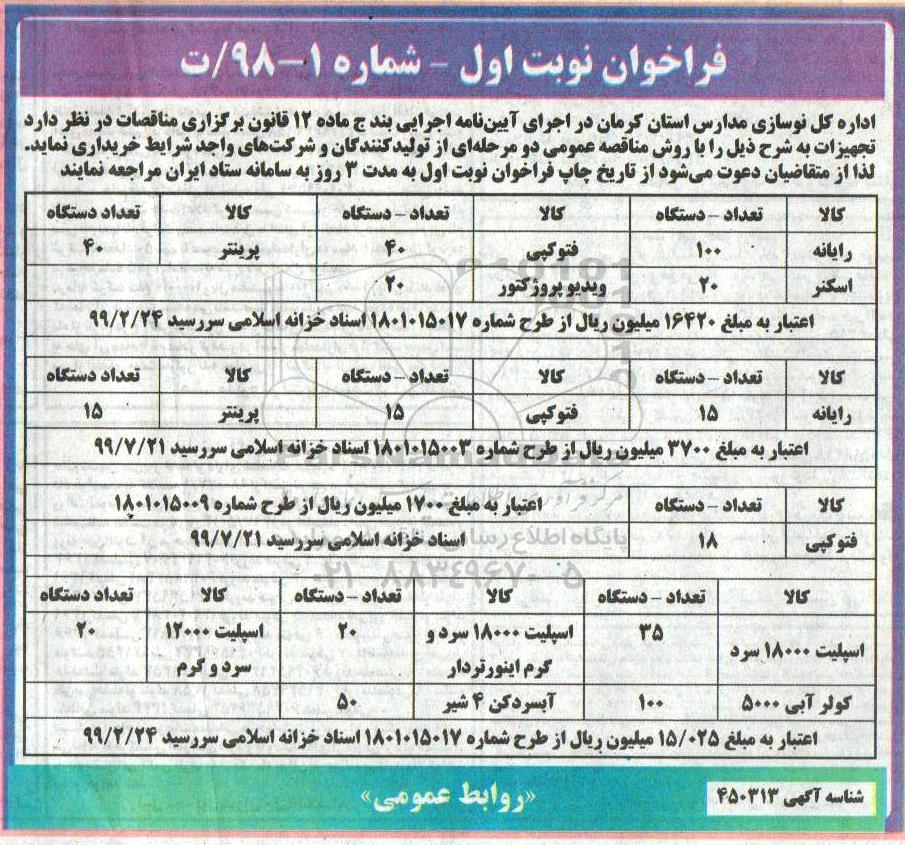 فراخوان نوبت اول - شماره ۱-۹۸/ت
اداره کل نوسازی مدارس استان کرمان در اجرای آیین‌نامه اجرایی بند ج ماده ۱۲ قانون برگزاری مناقصات در نظر دارد
تجهیزات به شرح ذیل را با روش مناقصه عمومی دو مرحله‌ای از تولیدکنندگان و شرکت‌های واجد شرایط خریداری نماید.
لذا از متقاضیان دعوت می‌شود از تاریخ چاپ فراخوان نوبت اول به مدت ۳ روز به سامانه ستاد ایران مراجعه نمایند
کالا تعداد - دستگاه کالا تعداد - دستگاه کالا تعداد دستگاه
رایانه ۱۰۰ فتوکپی ۴۰ پرینتر ۴۰
اسکنر ۲۰ ویدیو پروژکتور ۲۰
اعتبار به مبلغ ۱۶۴۲۰ میلیون ریال از طرح شماره ۱۸۰۱۰۱۵۰۱۷ اسناد خزانه اسلامی سررسید ۹۹/۲/۲۴
کالا تعداد - دستگاه کالا تعداد - دستگاه کالا تعداد دستگاه
رایانه ۱۵ فتوکپی ۱۵ پرینتر ۱۵
اعتبار به مبلغ ۳۷۰۰ میلیون ریال از طرح شماره ۱۸۰۱۰۱۵۰۰۳ اسناد خزانه اسلامی سررسید ۹۹/۷/۲۱
کالا تعداد - دستگاه اعتبار به مبلغ ۱۷۰۰ میلیون ریال از طرح شماره ۱۸۰۱۰۱۵۰۰۹
فتوکپی ۱۸ اسناد خزانه اسلامی سررسید ۹۹/۷/۲۱
پایگاه اطلاع رسانی
۰۲۱-۸۸۳۴۹۶۷۰-۵
کالا تعداد - دستگاه کالا تعداد - دستگاه کالا تعداد دستگاه
اسپلیت ۱۸۰۰۰ سرد ۳۵ اسپلیت ۱۸۰۰۰ سرد و ۲۰ اسپلیت ۱۲۰۰۰ ۲۰
گرم اینورتردار سرد و گرم
کولر آبی ۵۰۰۰ ۱۰۰ آبسردکن ۴ شیر ۵۰
اعتبار به مبلغ ۱۵/۰۲۵ میلیون ریال از طرح شماره ۱۸۰۱۰۱۵۰۱۷ اسناد خزانه اسلامی سررسید ۹۹/۲/۲۴
شناسه آگهی ۴۵۰۳۱۳
«روابط عمومی»